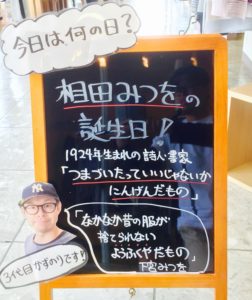 今日は何の日?
相田みつをの
誕生日!
1924年生まれの詩人・書家
「つまづいたっていいじゃないか
にんげんだもの」
「なかなか昔の服が
捨てられない
ようふくやだもの」
下宮みつを
3代目かずのりです!!